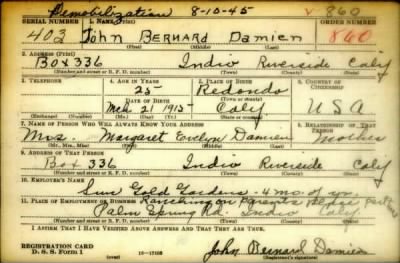 Demobilization 8-10-45 ✓ 860
SERIAL NUMBER 1. NAME (Print)
403 John Bernard Damien 860
(First) (Middle) (Last)
2. ADDRESS (Print)
Box 336 Indio Riverside Calif
(Number and street or R. F. D. number) (Town) (County) (State)
3. TELEPHONE 4. AGE IN YEARS 5. PLACE OF BIRTH 6. COUNTRY OF CITIZENSHIP
25 Redondo
DATE OF BIRTH (Town or county)
Mch 21 1915 Calif U S A
(Mo.) (Day) (Yr.) (State or country)
7. NAME OF PERSON WHO WILL ALWAYS KNOW YOUR ADDRESS 8. RELATIONSHIP OF THAT PERSON
Mrs. Margaret Evelyn Damien Mother
(Mr., Mrs., Miss) (First) (Middle) (Last)
9. ADDRESS OF THAT PERSON
Box 336 Indio Riverside Calif
(Number and street or R. F. D. number) (Town) (County) (State)
10. EMPLOYER'S NAME
Sun Gold Gardens - 4 mo. of yr.
11. PLACE OF EMPLOYMENT OR BUSINESS Ranching on Parents
Palm Spring Rd. Indio Calif
(Number and street or R. F. D. number) (Town) (County) (State)
I AFFIRM THAT I HAVE VERIFIED ABOVE ANSWERS AND THAT THEY ARE TRUE.
REGISTRATION CARD
D. S. S. Form 1 John Bernard Damien
(over) (Registrant's signature)